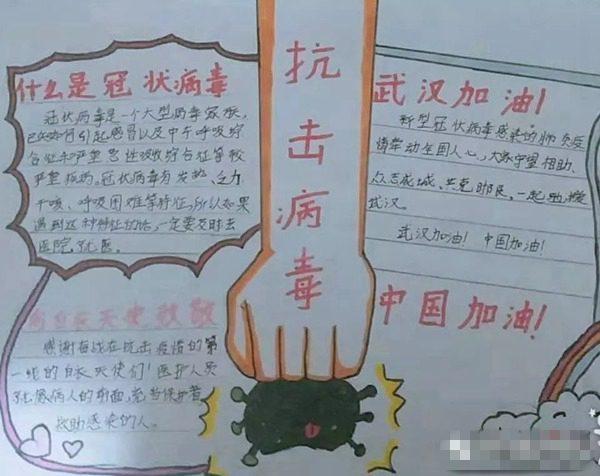 什么是冠状病毒
冠状病毒是一个大型病毒家族,
已知可引起感冒以及中东呼吸综
合征和严重急性呼吸综合征等较
严重疾病。冠状病毒有发热、乏力、
干咳、呼吸困难等特征,所以如果
遇到这种特征的话,一定要及时去
医院就医。
向白衣天使致敬
感谢奋战在抗击疫情的第
一线的白衣天使们!医护人员
病人的前面,
救助感染的人。
抗击病毒
武汉加油!
新型冠状病毒感染的肺炎疫
情牵动全国人心,大家守望相助、
众志成城、共克时艰,一起
武汉。
武汉加油! 中国加油!
中国加油!